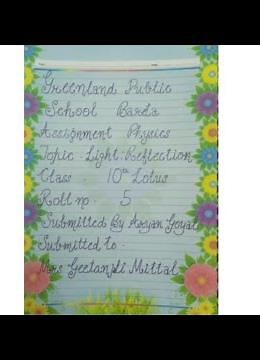 Greenland Public
School Bareta
Assignment Physics
Topic - Light: Reflection
Class 10th Lotus
Roll no - 5
Submitted By Aryan Goyal
Submitted to -
Mrs Geetanjli Mittal